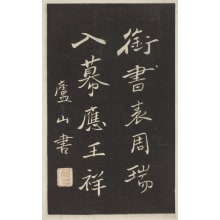 銜書表周瑞
入幕應王祥
盧山書